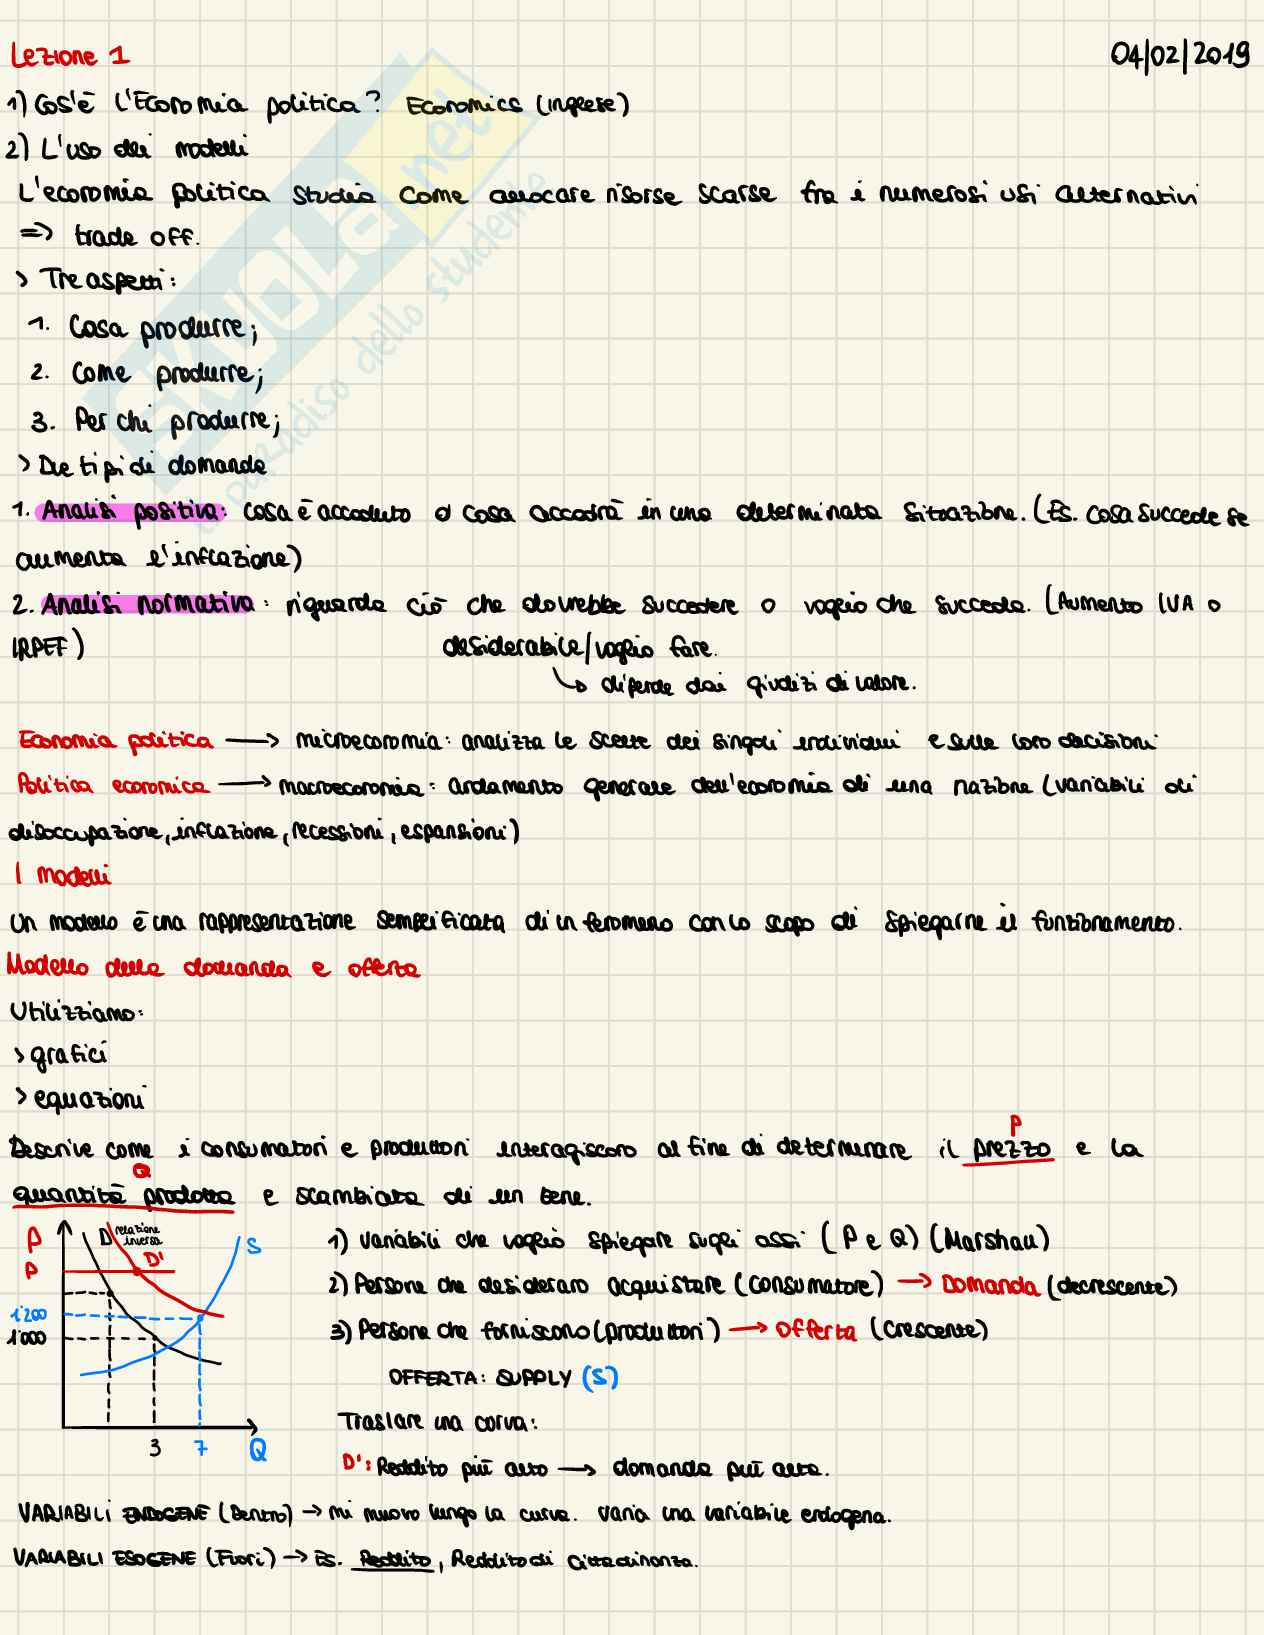 Lezione 1
04/02/2019
1) Cos'è l'Economia politica? Economics (inglese)
2) L'uso dei modelli
L'economia politica studia come allocare risorse scarse fra i numerosi usi alternativi
=> trade off.
> Tre aspetti:
1. Cosa produrre;
2. Come produrre;
3. Per chi produrre;
> Due tipi di domande
1. Analisi positiva: cosa è accaduto o cosa accadrà in una determinata situazione. (Es. cosa succede se
aumenta l'inflazione)
2. Analisi normativa: riguarda ciò che dovrebbe succedere o voglio che succeda. (Aumento IVA o
IRPEF) desiderabile/voglio fare.
↳ dipende dai giudizi di valore.
Economia politica → microeconomia: analizza le scelte dei singoli individui e sulle loro decisioni
Politica economica → macroeconomia: andamento generale dell'economia di una nazione (variabili di
disoccupazione, inflazione, recessioni, espansioni)
I modelli
Un modello è una rappresentazione semplificata di un fenomeno con lo scopo di spiegarne il funzionamento.
Modello della domanda e offerta
Utilizziamo:
> grafici
> equazioni
P
Descrive come i consumatori e produttori interagiscono al fine di determinare il prezzo e la
Q
quantità prodotta e scambiata di un bene.
P
D relazione inversa
D'
S
P
1'200
1'000
3 7 Q
1) Variabili che voglio spiegare sugli assi (P e Q) (Marshall)
2) Persone che desiderano acquistare (consumatore) → Domanda (decrescente)
3) Persone che forniscono (produttori) → Offerta (crescente)
OFFERTA: SUPPLY (S)
Traslare una curva:
D': Reddito più alto → domanda più alta.
VARIABILI ENDOGENE (Dentro) → mi muovo lungo la curva. Varia una variabile endogena.
VARIABILI ESOGENE (Fuori) → Es. Reddito, Reddito di cittadinanza.
SKUOLA.net
il paradiso dello studente